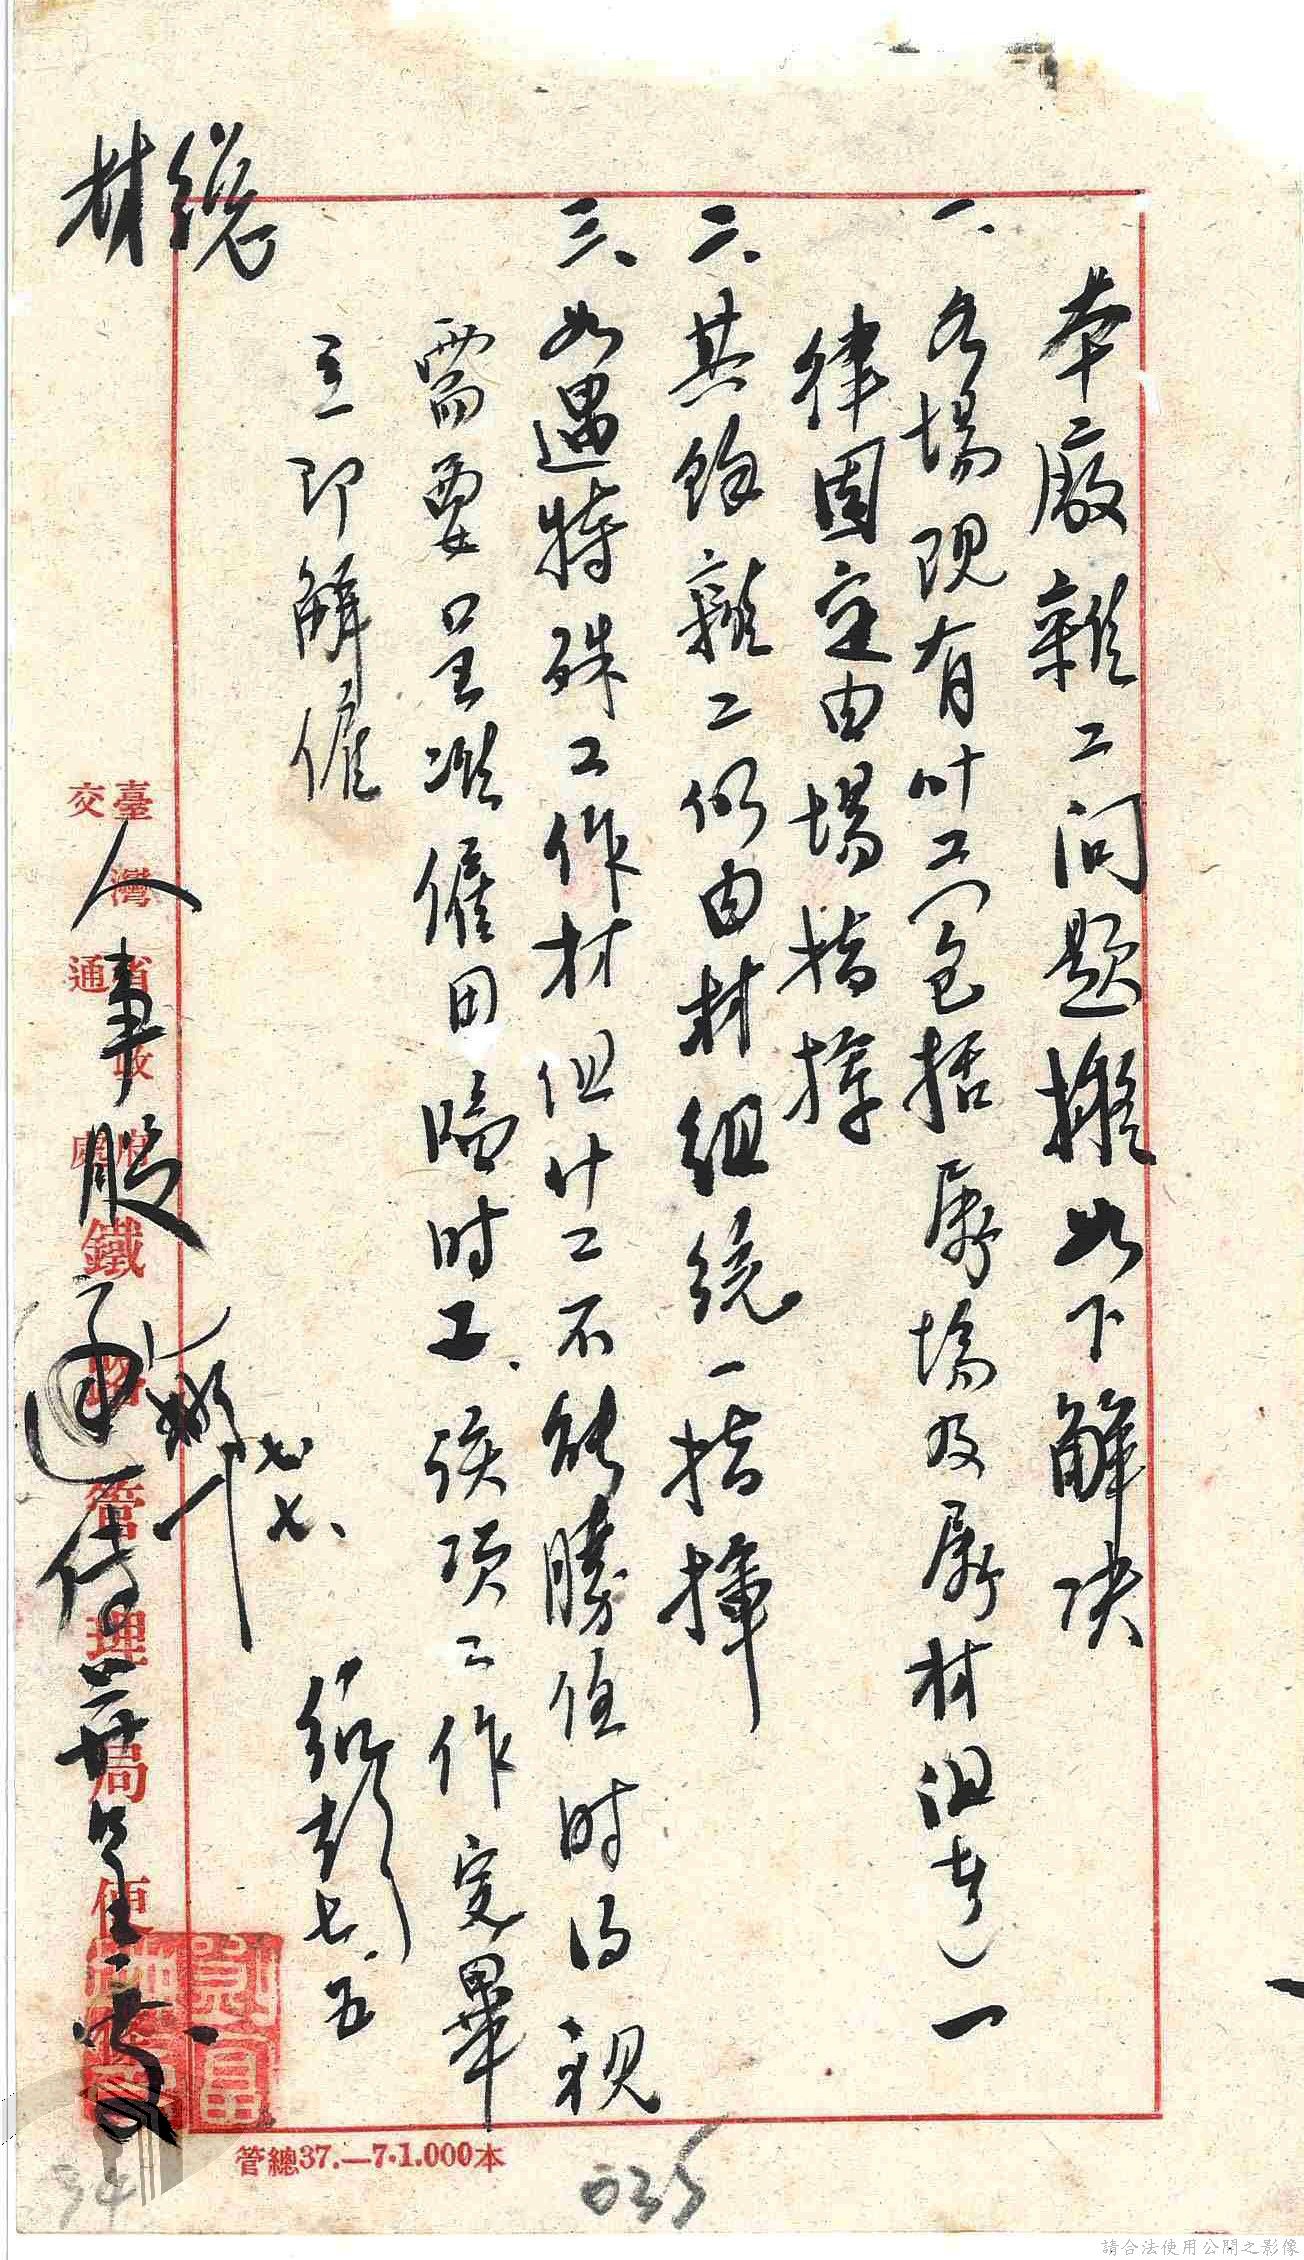 本廠雜工问题擬如下解决
一、各場现有什工(包括屬場及屬材组者)一
律固定由場指揮
二、其餘雜工仍由材组统一指揮
三、如遇特殊工作材组什工不能勝任时得视
需要呈准僱用临时工、该项工作完畢
立即解僱
绍彭七.五
總
材
七七、
人事股
臺灣省政府
交通處
鐵路管理局便
管總37.—7.1.000本
035
94
請合法使用公開之影像